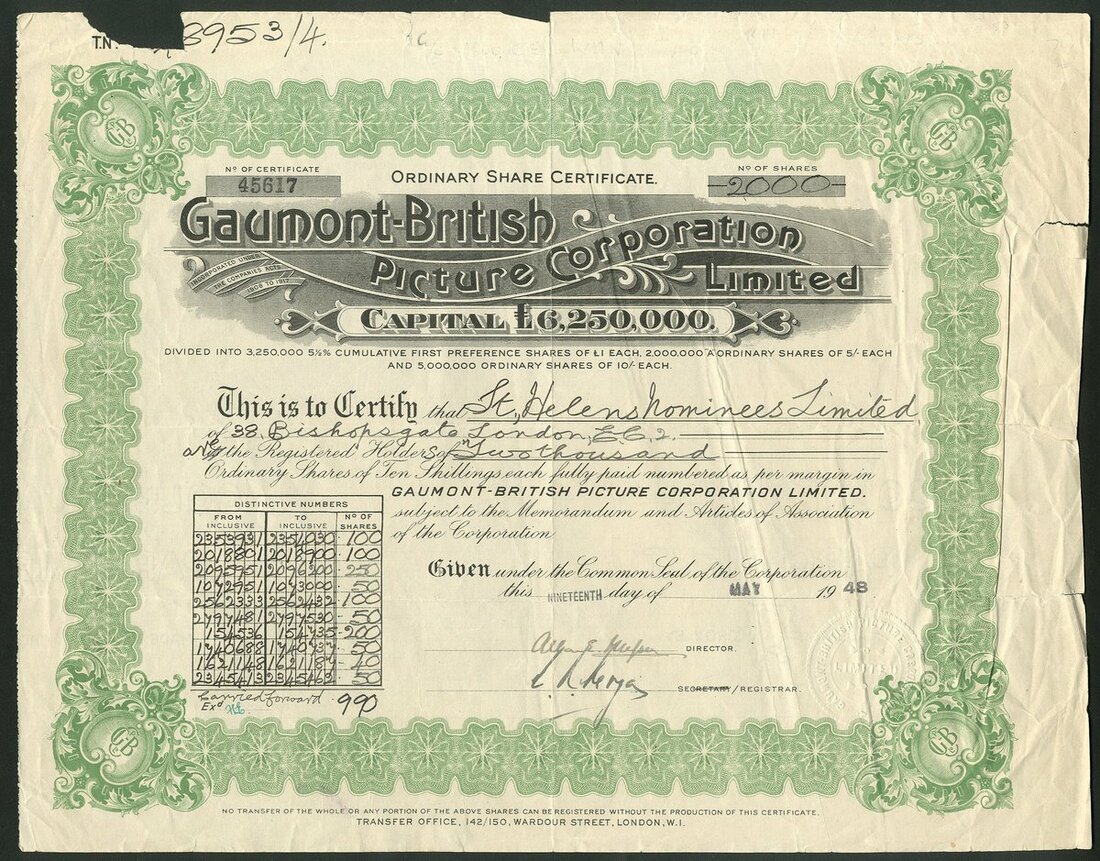 T.N. 8953/4.
GB GB
Nº OF CERTIFICATE
45617
ORDINARY SHARE CERTIFICATE.
Nº OF SHARES
2000
Gaumont-British
Picture Corporation
Limited
INCORPORATED UNDER
THE COMPANIES ACTS
1908 TO 1917
CAPITAL £6,250,000.
DIVIDED INTO 3,250,000 5½% CUMULATIVE FIRST PREFERENCE SHARES OF £1 EACH, 2,000,000 A ORDINARY SHARES OF 5/- EACH
AND 5,000,000 ORDINARY SHARES OF 10/- EACH.
This is to Certify that St. Helens Nominees Limited
of 38, Bishopsgate London, E.C.2.
are the Registered Holders of Two thousand
Ordinary Shares of Ten Shillings each fully paid numbered as per margin in
GAUMONT-BRITISH PICTURE CORPORATION LIMITED.
subject to the Memorandum and Articles of Association
of the Corporation
DISTINCTIVE NUMBERS
FROM INCLUSIVE TO INCLUSIVE Nº OF SHARES
100
2018801 2018900 100
2095951 2096200 250
50
2562333 2562432 100
50
200
50
40
50
Carried forward 990
Exd
Given under the Common Seal of the Corporation
this NINETEENTH day of MAY 1948
DIRECTOR.
SECRETARY/REGISTRAR.
GB GB
NO TRANSFER OF THE WHOLE OR ANY PORTION OF THE ABOVE SHARES CAN BE REGISTERED WITHOUT THE PRODUCTION OF THIS CERTIFICATE.
TRANSFER OFFICE, 142/150, WARDOUR STREET, LONDON, W.1.